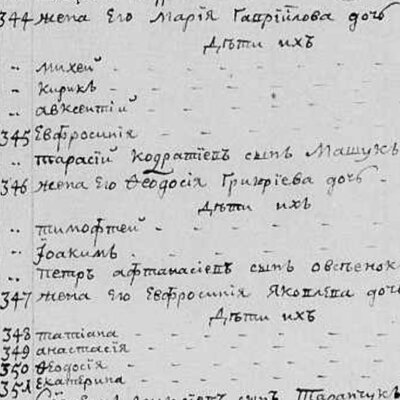 344 жена Его Марія Гавріилова дочь
Дѣти ихъ
„ михей
„ кирикъ
„ авксентій
345 Евфросинія
„ тарасій Кодратіевъ сынъ Машукъ
346 жена Его Ѳеодосія Григоріева дочь
Дѣти ихъ
„ тимофтей
„ Іоакимъ
„ петръ афтанасіевъ сынъ овсѣенок
347 жена Его Евфросинія Яковлева дочь
Дѣти ихъ
348 татіана
349 анастасія
350 Ѳеодосія
351 Екатерина
сынъ Таранчукъ